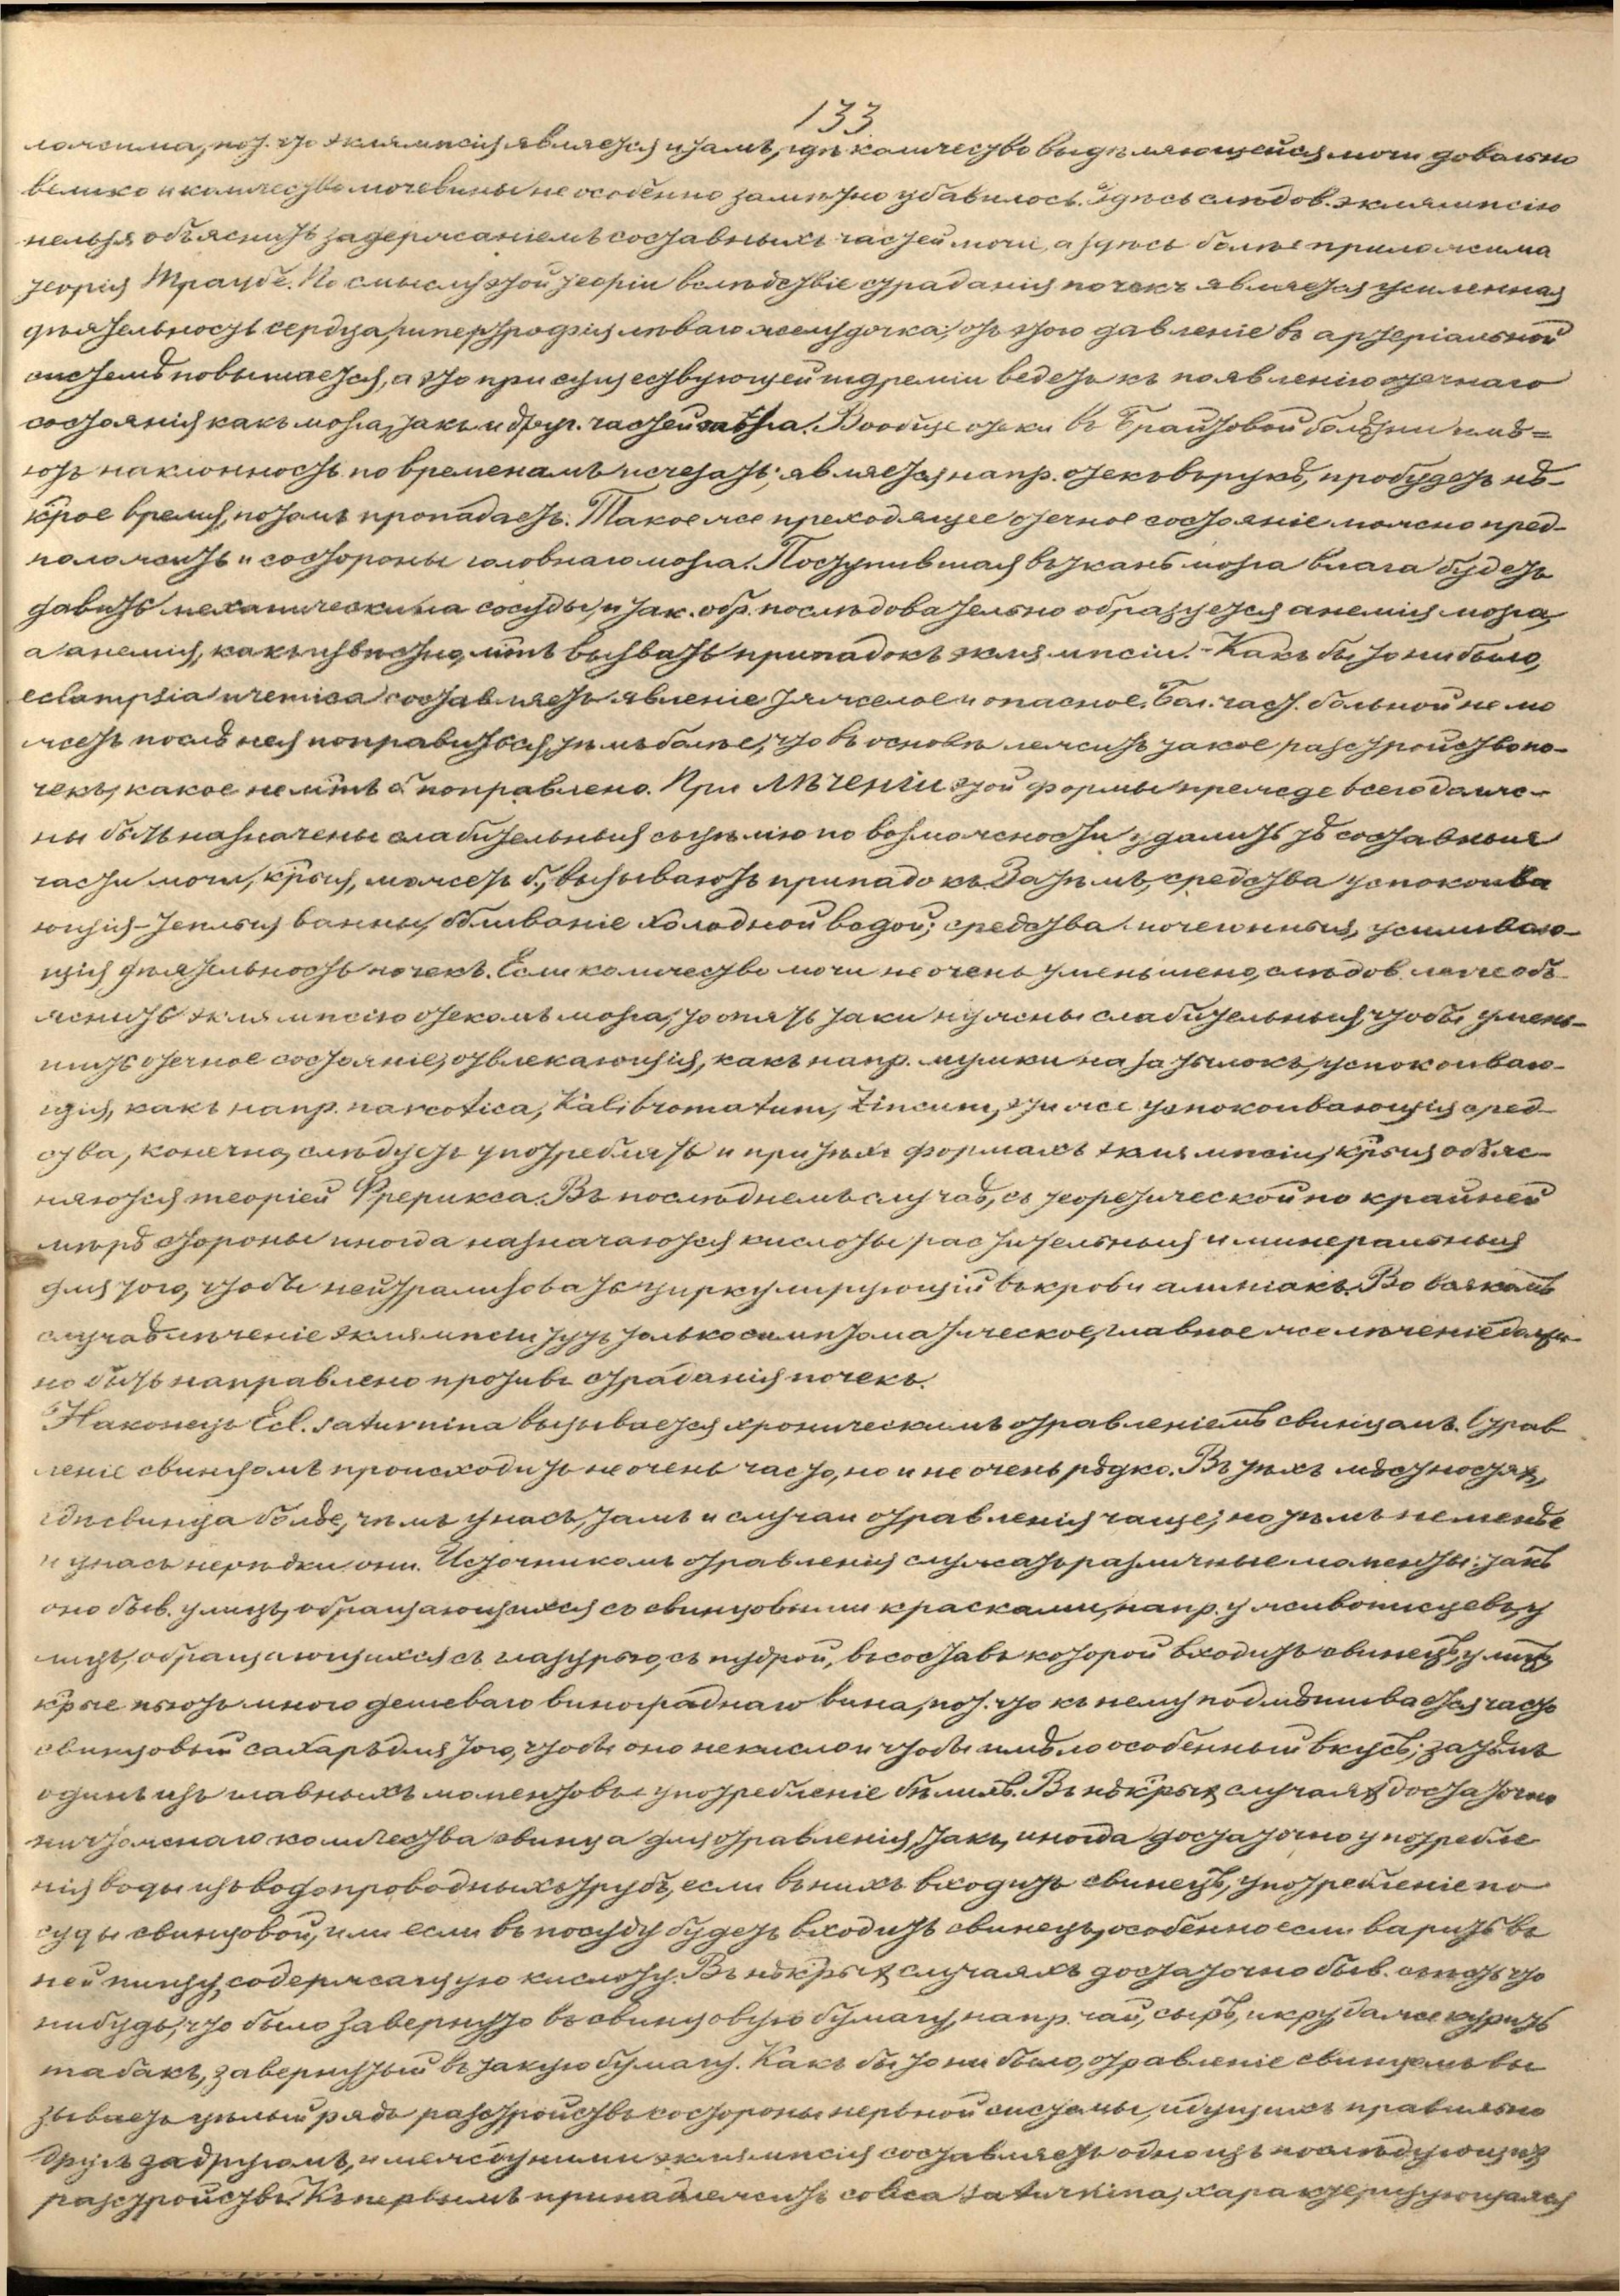 133
ложима, пот. что эклямпсія является и тамъ, гдѣ количество выдѣляющейся мочи довольно
велико и количество мочевины не особенно замѣтно убавилось. Здѣсь слѣдов. эклямпсію
нельзя объяснить задержаніемъ составныхъ частей мочи, а здѣсь болѣе приложима
теорія Траубе. По смыслу этой теоріи вслѣдствіе страданія почекъ является усиленная
дѣятельность сердца, гипертрофія лѣваго желудочка; отъ этого давленіе въ артеріальной
системѣ повышается, а это при существующей гидреміи ведетъ къ появленію отечнаго
состоянія какъ мозга, такъ и друг. частей тѣла. Вообще отеки въ Брайтовой болѣзни имѣ=
ютъ наклонность по временамъ исчезать; является напр. отекъ въ рукѣ, пробудетъ нѣ-
крое время, потомъ пропадаетъ. Такое же преходящее отечное состояніе можно пред-
положить и со стороны головнаго мозга. Поступившая въ ткань мозга влага будетъ
давить механически на сосуды, и так. обр. послѣдовательно образуется анемія мозга,
а анемія, какъ извѣстно, мѣтъ вызвать припадокъ эклямпсіи. - Какъ бы то ни было,
eclampsia uremica составляетъ явленіе тяжелое и опасное. Бол. част. больной не мо
жетъ послѣ нея поправиться, тѣмъ болѣе, что въ основѣ лежитъ такое разстройство по-
чекъ, какое не мѣтъ б. поправлено. При лѣченіи этой формы прежде всего долж-
ны быть назначены слабительныя съ цѣлію по возможности удалить тѣ составныя
части мочи, крыя, можетъ б., вызываютъ припадокъ. Затѣмъ, средства успокоива
ющія - теплыя ванны, обливаніе холодной водой; средства мочегонныя, усиливаю-
щія дѣятельность почекъ. Если количество мочи не очень уменьшено, слѣдов. легче объ
яснить эклямпсію отекомъ мозга, то опять таки нужны слабительныя, чтобы умень-
шить отечное состояніе, отвлекающія, какъ напр. мушки на затылокъ, успокоиваю-
щія, какъ напр. narcotica, Kali bromatum, Zincum, эти же успокоивающія сред-
ства, конечно, слѣдуетъ употреблять и при тѣхъ формахъ эклямпсіи, крыя объяс-
няются теоріей Фрерикса. Въ послѣднемъ случаѣ, съ теоретической по крайней
мѣрѣ стороны иногда назначаются кислоты растительныя и минеральныя
для того, чтобы нейтрализовать циркулирующій въ крови амміакъ. Во всякомъ
случаѣ лѣченіе эклямпсіи тутъ только симптоматическое, главное же лѣченіе долж-
но быть направлено противъ страданія почекъ.
Наконецъ Ecl. saturnina вызывается хроническимъ отравленіемъ свинцомъ. Отрав
леніе свинцомъ происходитъ не очень часто, но и не очень рѣдко. Въ тѣхъ мѣстностях,
гдѣ свинца болѣе, чѣмъ у насъ, тамъ и случаи отравленія чаще, но тѣмъ не менѣе
и у насъ нерѣдки они. Источникомъ отравленія служатъ различные моменты: такъ
оно быв. у лицъ, обращающихся со свинцовыми красками, напр. у живописцевъ, у
лицъ, обращающихся съ глазурью, съ пудрой, въ составъ которой входитъ свинецъ, у лицъ,
крые пьютъ много дешеваго винограднаго вина, пот. что къ нему подмѣшивается часто
свинцовый сахаръ для того, чтобы оно не кисло и чтобы имѣло особенный вкусъ; затѣмъ
одинъ изъ главныхъ моментовъ - употребленіе бѣлилъ. Въ нѣкрых случаях достаточно
ничтожнаго количества свинца для отравленія, такъ, иногда достаточно употребле
нія воды изъ водопроводныхъ трубъ, если въ нихъ входитъ свинецъ, употребленіе по
суды свинцовой, или если въ посуду будетъ входить свинецъ, особенно если варить въ
ней пищу, содержащую кислоту. Въ нѣкрых случаяхъ достаточно быв. съесть что
нибудь, что было завернуто въ свинцовую бумагу, напр. чай, сыръ, икру, даже курить
табакъ, завернутый въ такую бумагу. Какъ бы то ни было, отравленіе свинцомъ вы
зываетъ цѣлый рядъ разстройствъ со стороны нервной системы, идущихъ правильно
другъ за другомъ, и между ними эклямпсія составляетъ одно изъ послѣдующих
разстройствъ. Къ первымъ принадлежитъ colica saturnina, характеризующаяся